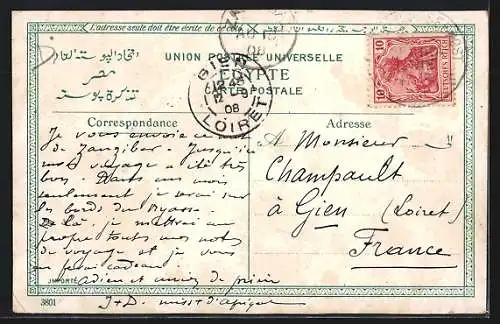 L'adresse seule doit être écrite de ce côté
اتحاد البوستة العام
مصر
تذكرة بوستة
UNION POSTALE UNIVERSELLE
EGYPTE
CARTE POSTALE
ZA
08
GIEN
12
08
LOIRET
10 10
DEUTSCHES REICH
Correspondance
Adresse
Je vous envoie
de Zanzibar. Jusqu'ici
mon voyage a été très
bon. Dans un mois
seulement je serai sur
les bords du Nyassa.
De là je mettrai au
propre toutes mes notes
de voyage et je vous
en ferai cadeau.
adieu et
J + D. d'Afrique
A Monsieur
Champault
à Gien (Loiret)
France
IMPORTÉ
3801